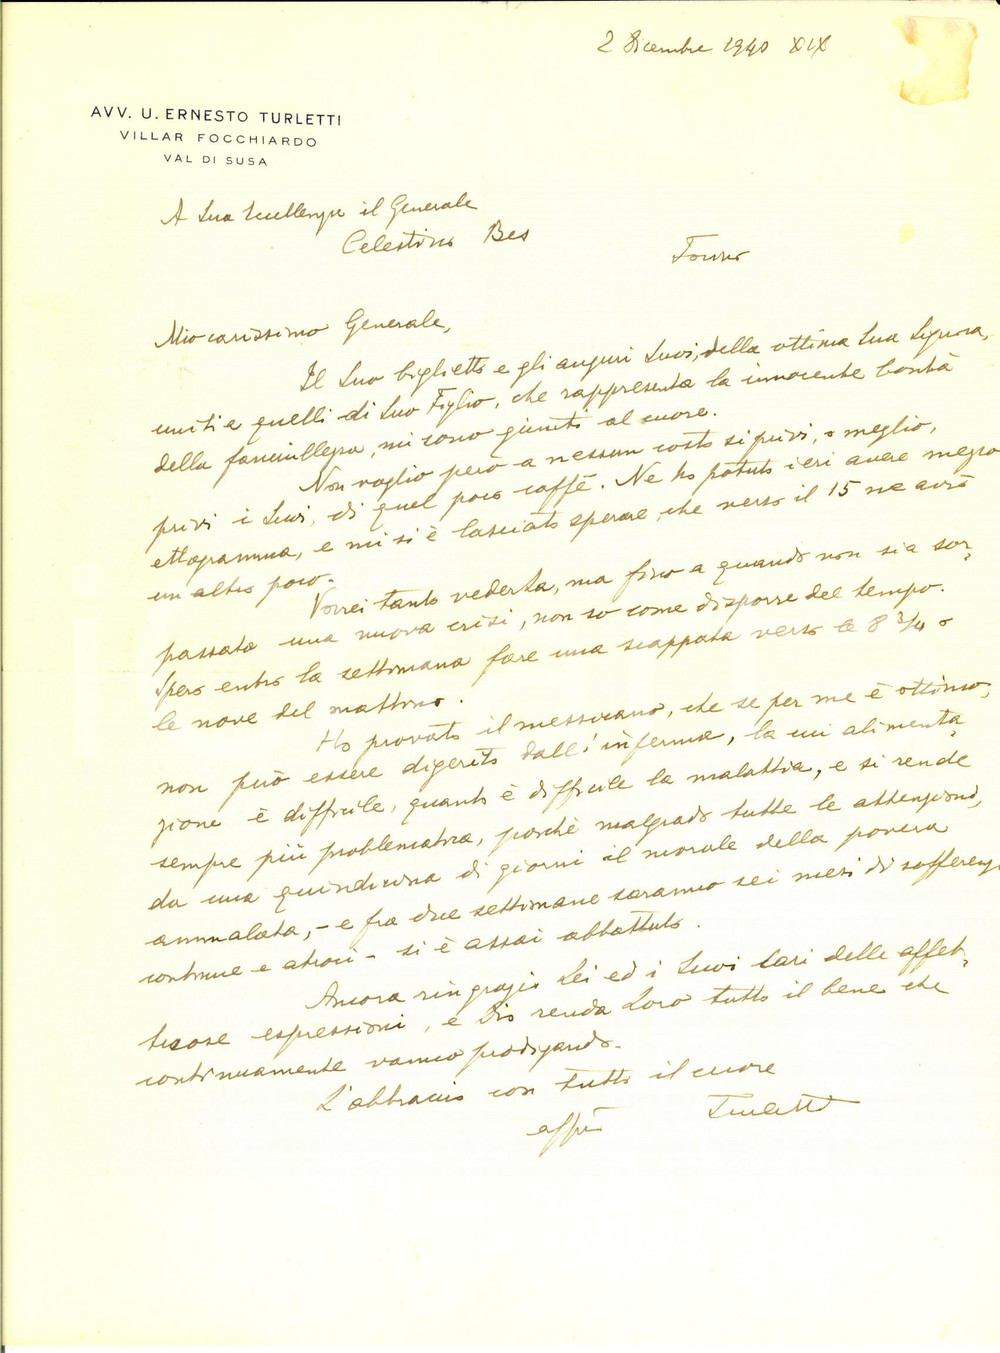 2 Dicembre 1940 XIX
AVV. U. ERNESTO TURLETTI
VILLAR FOCCHIARDO
VAL DI SUSA
A Sua Eccellenza il Generale
Celestino Bes
Torino
Mio carissimo Generale,
Il Suo biglietto e gli auguri Suoi, della ottima Sua Signora,
uniti a quelli di Suo Figlio, che rappresenta la innocente bontà
della fanciullezza, mi sono giunti al cuore.
Non voglio però a nessun costo si privi, o meglio,
privi i Suoi, di quel poco caffè. Ne ho potuto ieri avere mezzo
ettogramma, e mi si è lasciato sperare, che verso il 15 ne avrò
un altro poco.
Vorrei tanto vederLa, ma fino a quando non sia sor-
passata una nuova crisi, non so come disporre del tempo.
Spero entro la settimana fare una scappata verso le 8 3/4 o
le nove del mattino.
Ho provato il messicano, che se per me è ottimo,
non può essere digerito dall'inferma, la cui alimenta-
zione è difficile, quanto è difficile la malattia, e si rende
sempre più problematica, perchè malgrado tutte le attenzioni,
da una quindicina di giorni il morale della povera
ammalata, - e fra due settimane saranno sei mesi di sofferenze
continue e atroci - si è assai abbattuto.
Ancora ringrazio Lei ed i Suoi Cari delle affet-
tuose espressioni, e Dio renda Loro tutto il bene che
continuamente vanno prodigando.
L'abbraccio con tutto il cuore
aff.mo Turletti